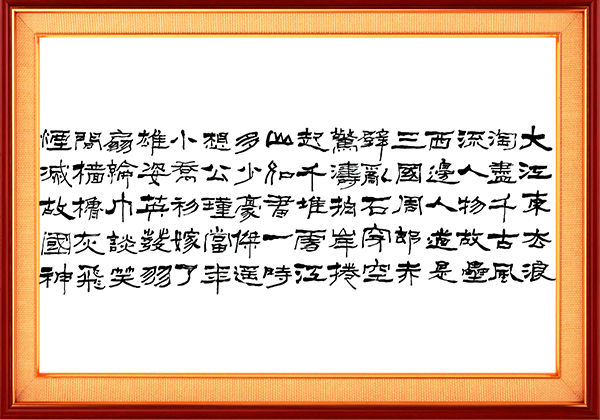 大江東去浪
淘盡千古風
流人物故壘
西邊人道是
三國周郎赤
壁亂石穿空
驚濤拍岸捲
起千堆雪江
山如畫一時
多少豪傑遙
想公瑾當年
小喬初嫁了
雄姿英發羽
扇綸巾談笑
間檣櫓灰飛
煙滅故國神